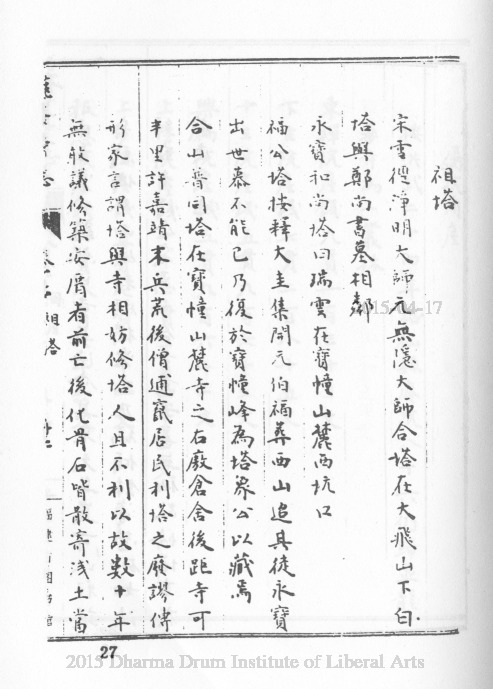 祖塔
宋雪僊淨明大師元無隱大師合塔在大飛山下白
塔與鄭尚書墓相鄰
永寶和尚塔曰瑞雲在寶幢山麓西坑口
福公塔按釋大圭集開元伯福葬西山追其徒永寶
出世慕不能已乃復於寶幢峰為塔祭公以藏焉
合山普同塔在寶幢山麓寺之右廢倉舍後距寺可
半里許嘉靖末兵荒後僧逋竄居民利塔之廢謬傳
形家言謂塔與寺相妨修塔人且不利以故數十年
無敢議修築安厝者前亡後化骨石皆散寄淺土當
祖塔
2015-04-17
27
2015 Dharma Drum Institute of Liberal Arts